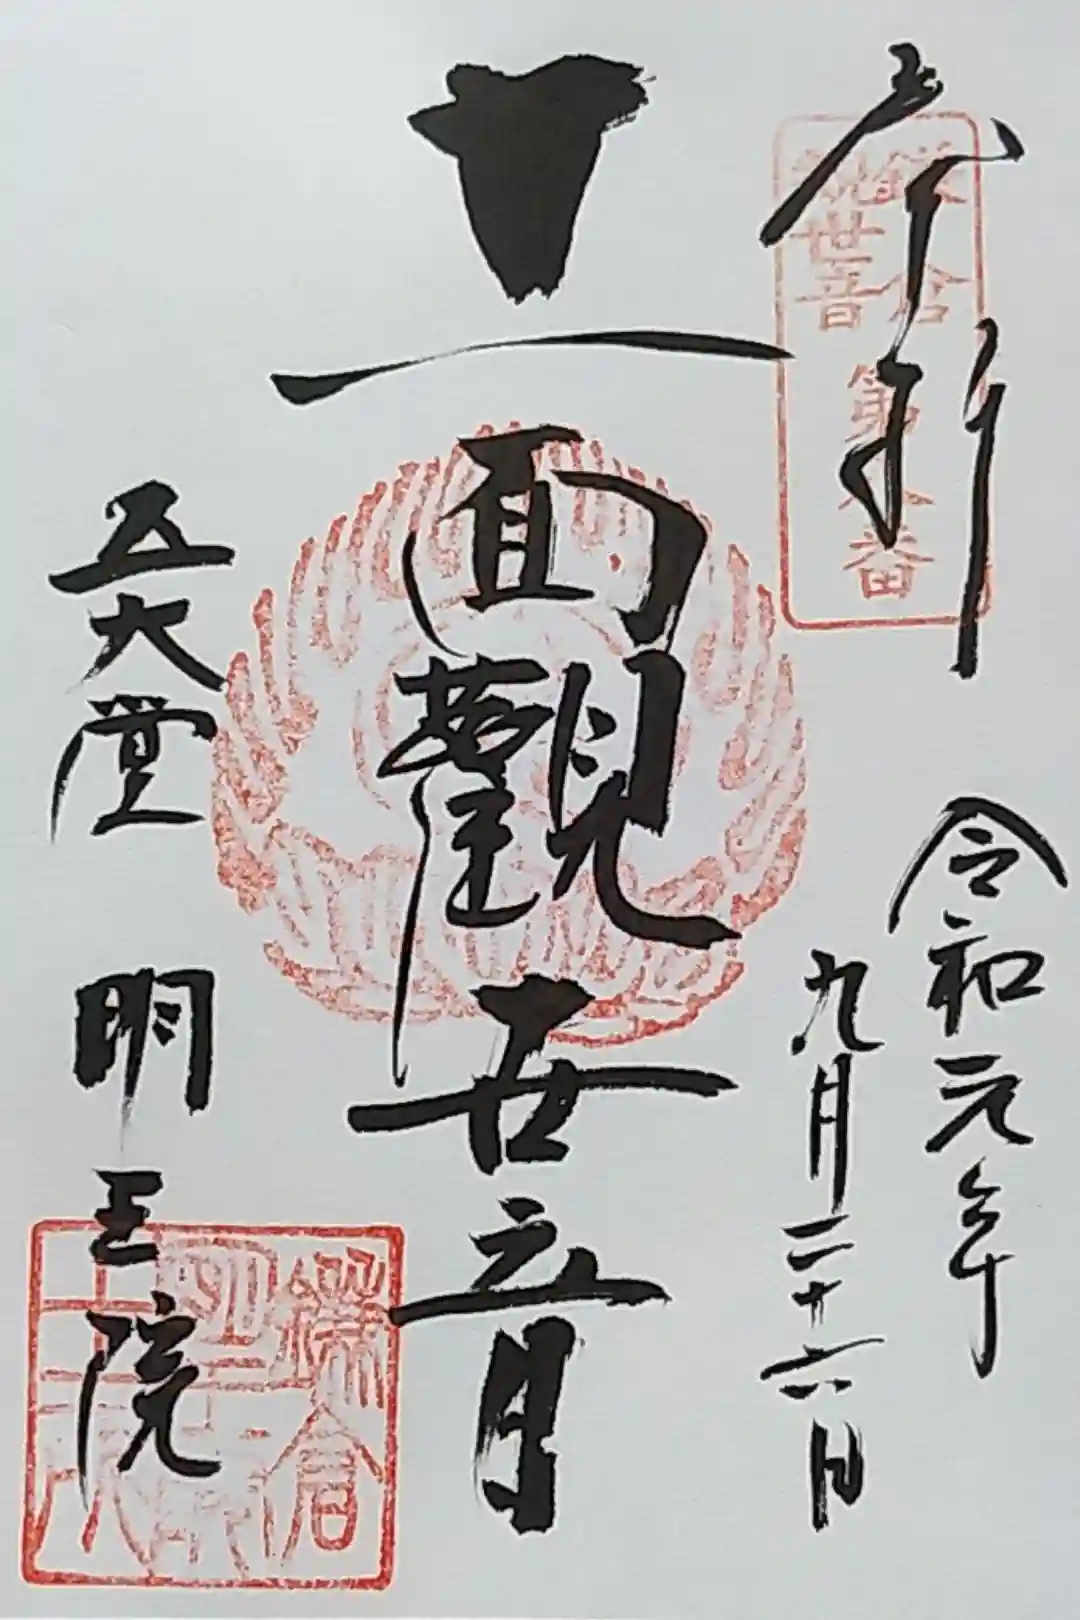 奉拝
鎌倉
観世音
第八番
令和元年
九月二十六日
十一面觀世音
五大堂 明王院
鎌倉